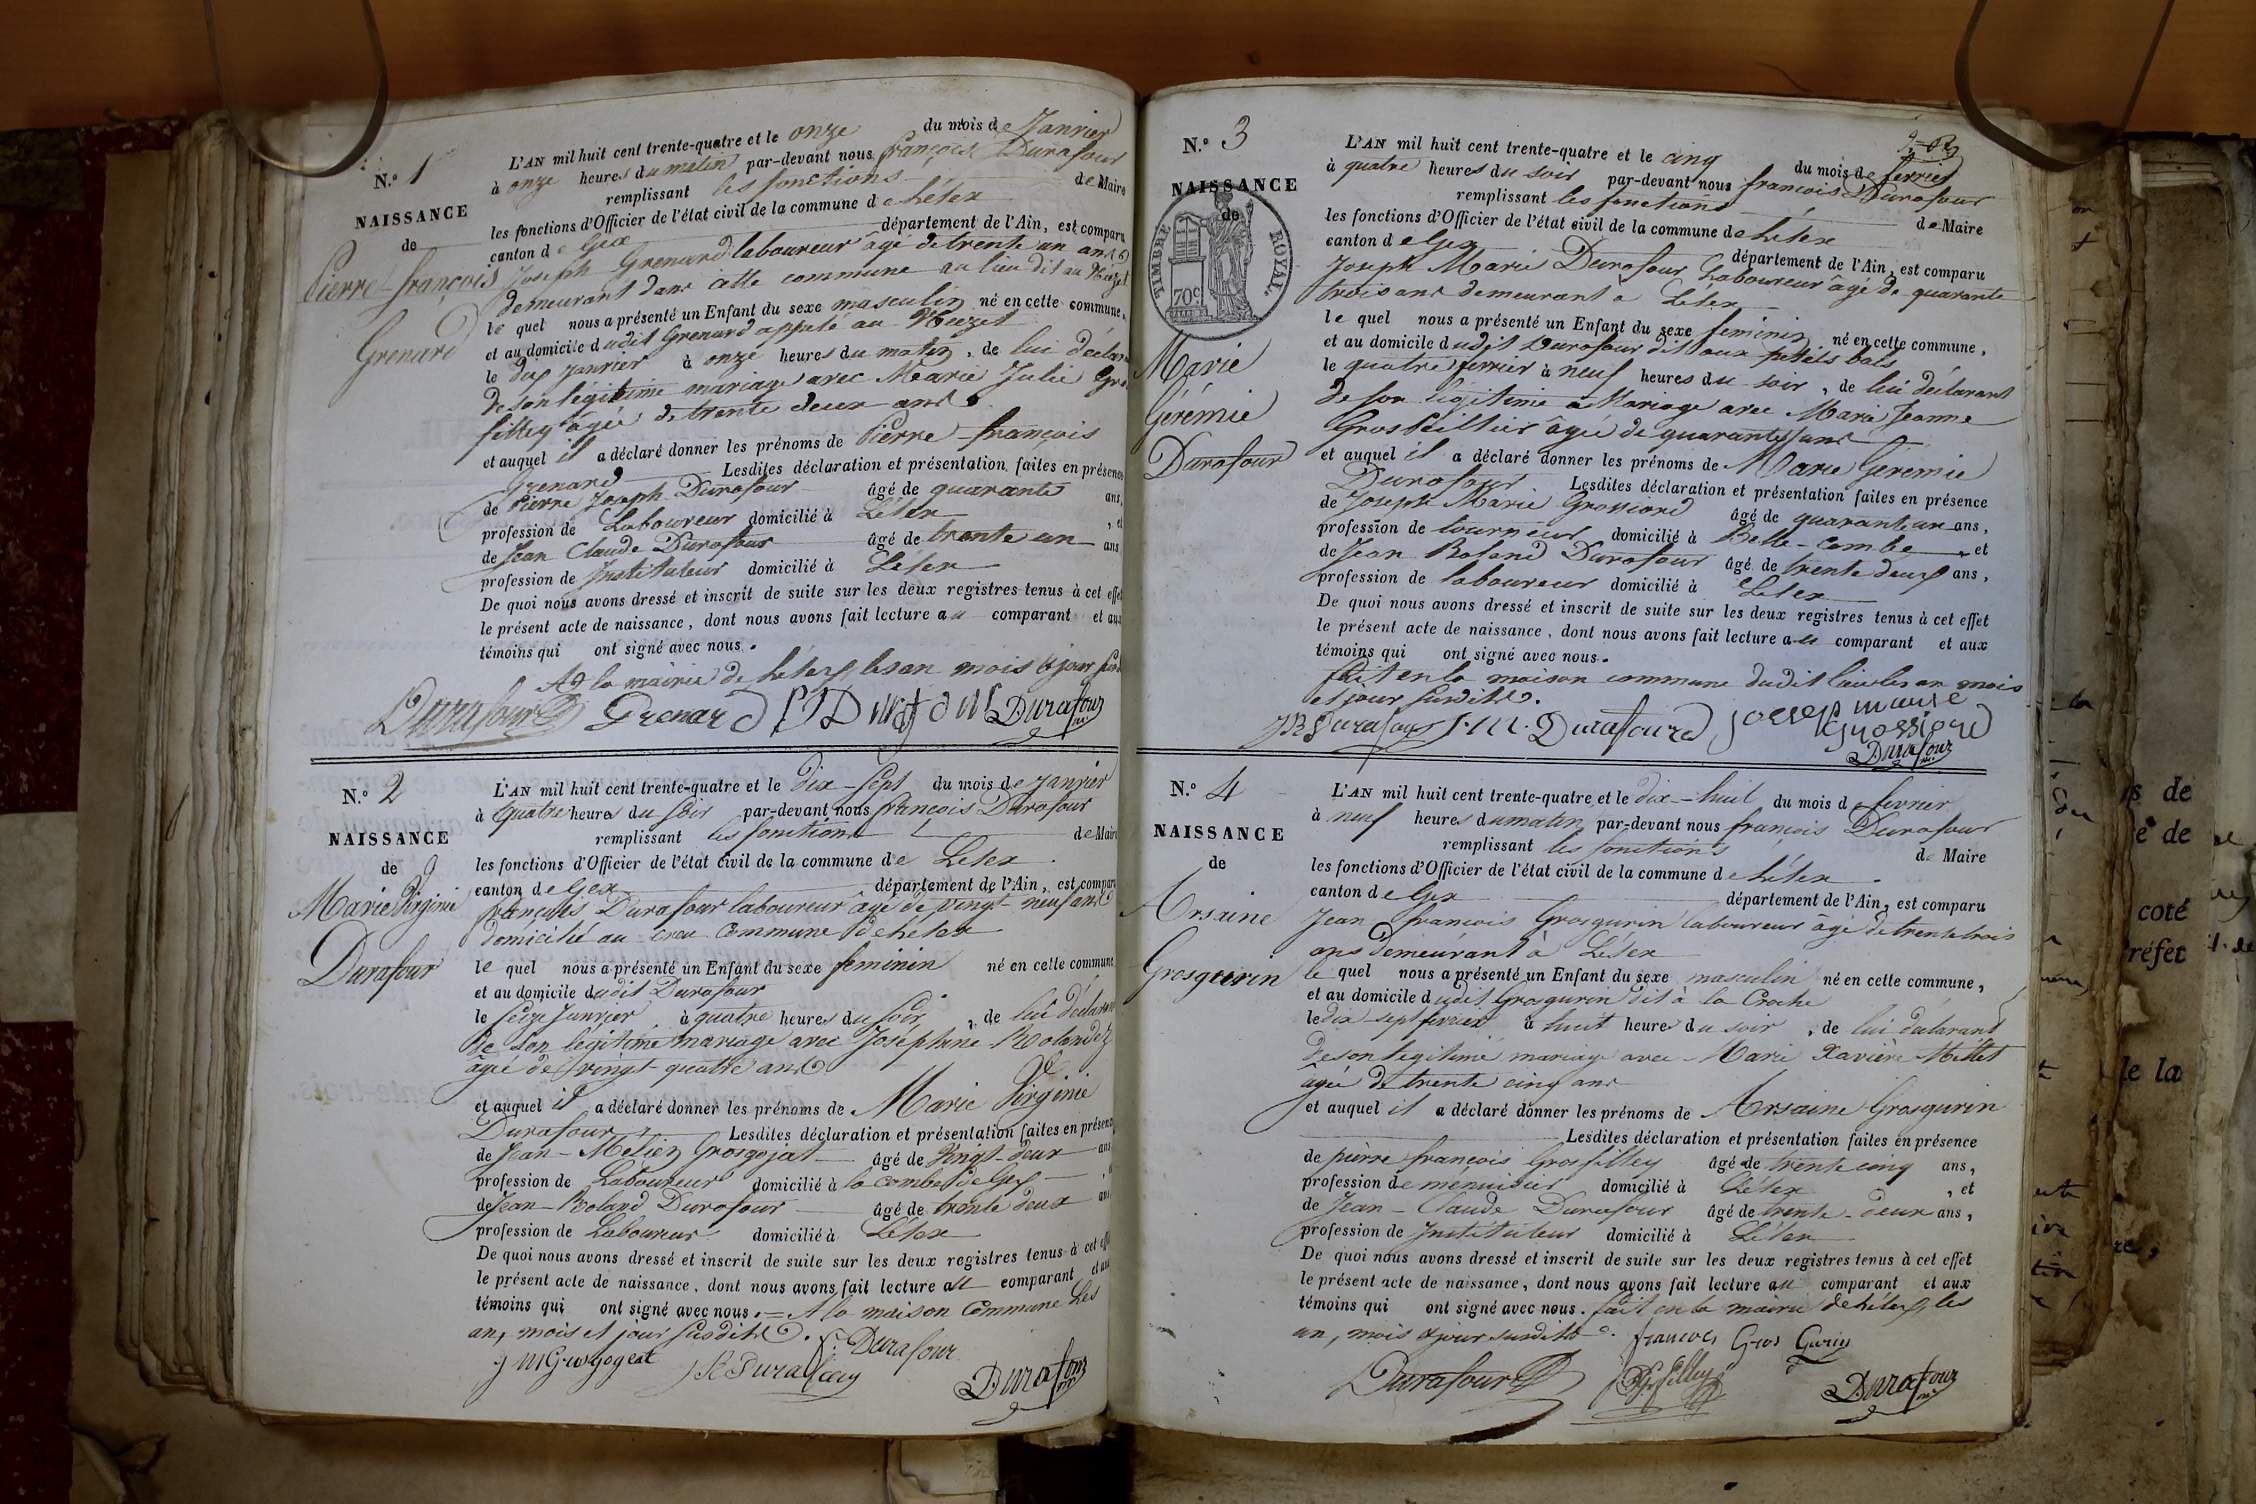 N.º 1
NAISSANCE
de
Pierre-françois
Grenard
L'AN mil huit cent trente-quatre et le onze du mois de Janvier
à onze heures du matin par-devant nous françois Durafour
remplissant les fonctions de Maire
les fonctions d'Officier de l'état civil de la commune de Lélex
canton de Gex département de l'Ain, est comparu
Joseph Grenard laboureur âgé de trente un ans
demeurant dans cette commune au lieu dit au
le quel nous a présenté un Enfant du sexe masculin né en cette commune,
et au domicile dudit Grenard appelé au
le dix janvier à onze heures du matin, de lui déclarant
de son légitime mariage avec Marie Julie Gros
filley âgée de trente deux ans
et auquel il a déclaré donner les prénoms de Pierre-françois
Grenard Lesdites déclaration et présentation faites en présence
de Pierre Joseph Durafour âgé de quarante ans,
profession de Laboureur domicilié à Lélex, et
de Jean Claude Durafour âgé de trente un ans
profession de Instituteur domicilié à Lélex
De quoi nous avons dressé et inscrit de suite sur les deux registres tenus à cet effet
le présent acte de naissance, dont nous avons fait lecture au comparant et aux
témoins qui ont signé avec nous.
A la mairie de Lélex les an mois & jour
Durafour Grenard PJ Durafour Durafour
N.º 2
NAISSANCE
de
Marie Virginie
Durafour
L'AN mil huit cent trente-quatre et le dix-sept du mois de janvier
à quatre heures du soir par-devant nous françois Durafour
remplissant les fonctions de Maire
les fonctions d'Officier de l'état civil de la commune de Lélex.
canton de Gex département de l'Ain, est comparu
françois Durafour laboureur âgé de vingt-neuf ans
domicilié au creu commune de Lélex
le quel nous a présenté un Enfant du sexe feminin né en cette commune
et au domicile dudit Durafour
le seize Janvier à quatre heures du soir, de lui déclarant
de son légitime mariage avec Joséphine Rolandez
âgée de vingt quatre ans
et auquel il a déclaré donner les prénoms de Marie Virginie
Durafour Lesdites déclaration et présentation faites en présence
de Jean-Mélien Grosgojat âgé de vingt-deux ans
profession de Laboureur domicilié à la combe de Gex
de Jean-Roland Durafour âgé de trente deux ans
profession de Laboureur domicilié à Lélex
De quoi nous avons dressé et inscrit de suite sur les deux registres tenus à cet effet
le présent acte de naissance, dont nous avons fait lecture au comparant et aux
témoins qui ont signé avec nous. = A la maison Commune Les
an, mois et jour susdits.
f. Durafour
J M Grosgogeat JR Durafour Durafour
N.º 3
NAISSANCE
de
TIMBRE ROYAL
70c
Marie
Gérémie
Durafour
L'AN mil huit cent trente-quatre et le cinq du mois de fevrier
à quatre heures du soir par-devant nous françois Durafour
remplissant les fonctions de Maire
les fonctions d'Officier de l'état civil de la commune de Lélex
canton de Gex département de l'Ain, est comparu
Joseph Marie Durafour Laboureur âgé de quarante
trois ans demeurant à Lélex
le quel nous a présenté un Enfant du sexe feminin né en cette commune,
et au domicile dudit Durafour dit aux petits bals
le quatre fevrier à neuf heures du soir, de lui déclarant
de son légitime Mariage avec Marie Jeanne
âgée de quarante ans
et auquel il a déclaré donner les prénoms de Marie Gérémie
Durafour Lesdites déclaration et présentation faites en présence
de Joseph Marie Grossiord âgé de quarante un ans,
profession de tourneur domicilié à Belle-combe, et
de Jean Roland Durafour âgé de trente deux ans,
profession de laboureur domicilié à Lélex
De quoi nous avons dressé et inscrit de suite sur les deux registres tenus à cet effet
le présent acte de naissance, dont nous avons fait lecture au comparant et aux
témoins qui ont signé avec nous.
fait en la maison commune dudit lieu les an mois
et jour susdits.
JR Durafour J. M. Durafourd joseph marie
Grossiord
Durafour
N.º 4
NAISSANCE
de
Arsaine
Grosgurin
L'AN mil huit cent trente-quatre et le dix-huit du mois d fevrier
à neuf heures du matin par-devant nous françois Durafour
remplissant les fonctions de Maire
les fonctions d'Officier de l'état civil de la commune de Lélex.
canton de Gex département de l'Ain, est comparu
Jean françois Grosgurin laboureur âgé de trente trois
ans demeurant à Lélex
le quel nous a présenté un Enfant du sexe masculin né en cette commune,
et au domicile dudit Grosgurin dit à la Croche
le dix-sept fevrier à huit heures du soir, de lui déclarant
de son légitime mariage avec Marie Xavière Millet
âgée de trente cinq ans
et auquel il a déclaré donner les prénoms de Arsaine Grosgurin
Lesdites déclaration et présentation faites en présence
de pierre françois Grosfilley âgé de trente cinq ans,
profession de menuisier domicilié à Lélex, et
de Jean-Claude Durafour âgé de trente-deux ans,
profession de Instituteur domicilié à Lélex
De quoi nous avons dressé et inscrit de suite sur les deux registres tenus à cet effet
le présent acte de naissance, dont nous avons fait lecture au comparant et aux
témoins qui ont signé avec nous. fait en la mairie de Lélex, les
an, mois & jour susdits. francois Gros Gurin
Durafour Durafour
s de
e de
coté
réfet
le la